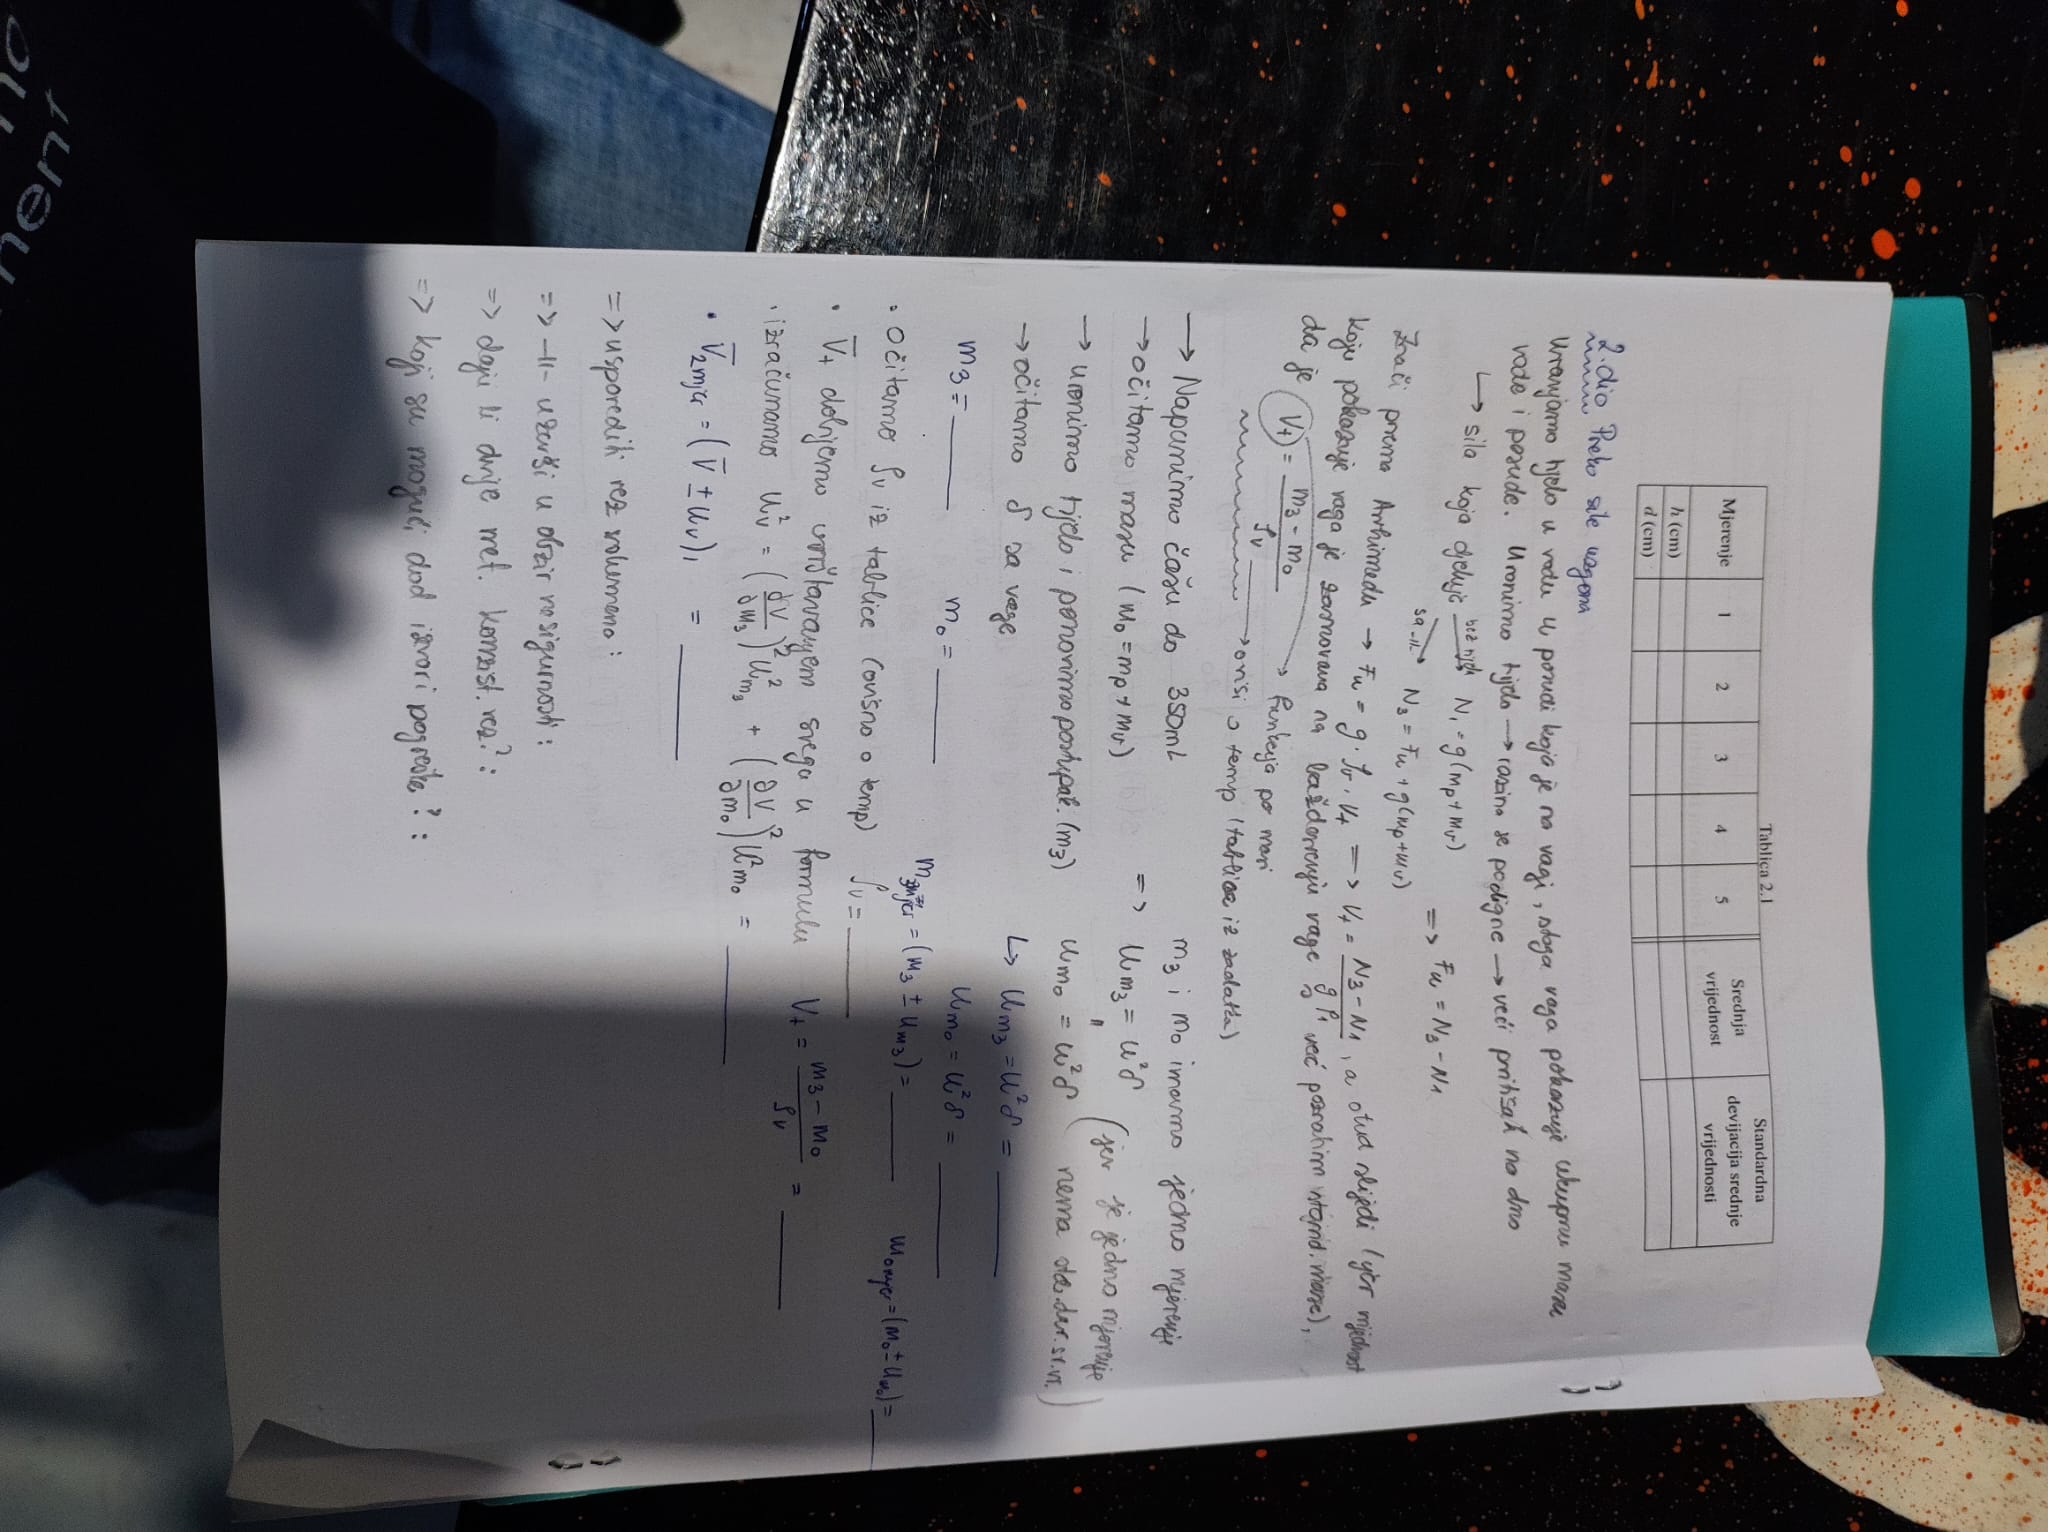 Tablica 2.1
Mjerenje 1 2 3 4 5 Srednja vrijednost Standardna devijacija srednje vrijednosti
h (cm)
d (cm)
2. dio Preko sile uzgona
Uranjamo tijelo u vodu u posudi koja je na vagi, stoga vaga pokazuje ukupnu masu
vode i posude. Uronimo tijelo → razina se podigne → veći pritisak na dno
↳ sila koja djeluje bez tijela → N₁ = g(mp + mv)
sa -||- → N₃ = Fu + g(mp + mv) => Fu = N₃ - N₁
Znači prema Arhimedu → Fu = g · ρv · Vt => Vt = N₃ - N₁ / g ρv, a otud slijedi (jer vrijednost
koju pokazuje vaga je zasnovana na baždarenju vage već poznatim vrijed. mase),
da je Vt = m₃ - m₀ / ρv → funkcija po masi
→ ovisi o temp (tablica iz zadatka)
→ Napunimo čašu do 350ml
→ očitamo masu (m₀ = mp + mv)
→ uronimo tijelo i ponovimo postupak (m₃)
→ očitamo δ sa vage
m₃ i m₀ imamo jedno mjerenje
=> Um₃ = u²δ (jer je jedno mjerenje
"
Um₀ = u²δ nema sta.dev.sr.vr.)
↳ Um₃ = u²δ = ____
Um₀ = u²δ = ____
m₃ = ____ m₀ = ____
m₃mjer = (m₃ ± Um₃) = ____ m₀mjer = (m₀ ± Um₀) = ____
• Očitamo ρv iz tablice (ovisno o temp) ρv = ____
• V̅t dobijemo uvrštavanjem svega u formulu Vt = m₃ - m₀ / ρv = ____
• izračunamo u²v = (∂V/∂m₃)² u²m₃ + (∂V/∂m₀)² u²m₀ = ____
• V̅₂mjer = (V̅ ± Uv), = ____
=> usporediti rez volumena :
=> -||- uzevši u obzir nesigurnosti :
=> daju li dvije met. konzist. rez? :
=> koji su mogući dod izvori pogreške? :